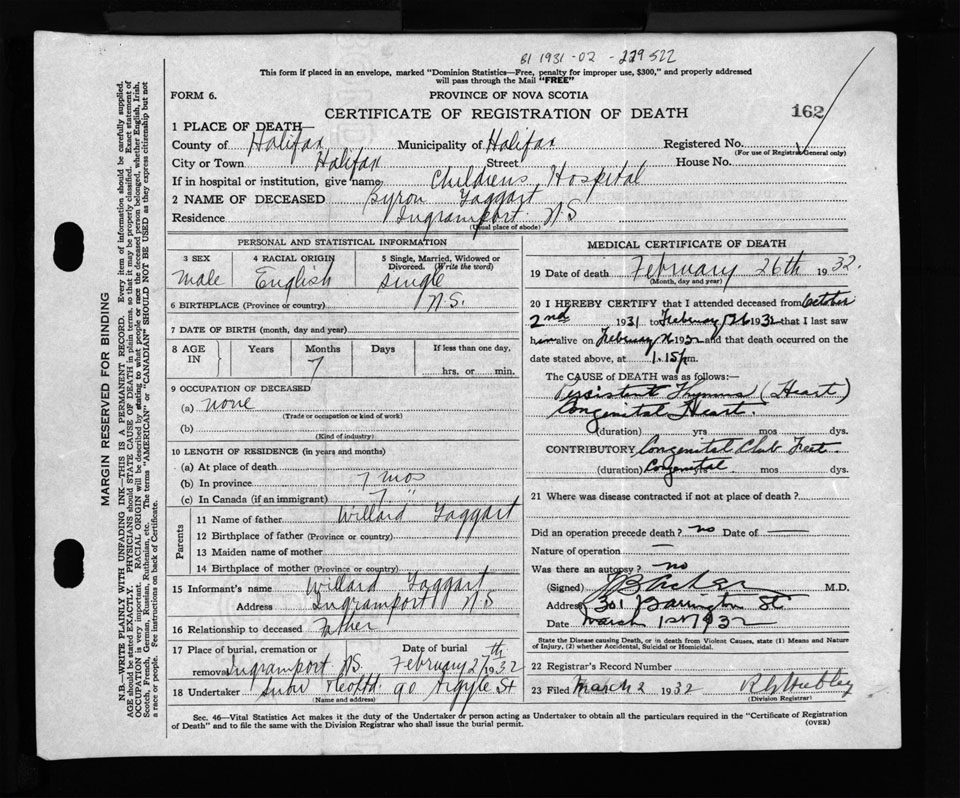 B1 1931-02-229522
This form if placed in an envelope, marked "Dominion Statistics—Free, penalty for improper use, $300," and properly addressed
will pass through the Mail "FREE"
FORM 6.
PROVINCE OF NOVA SCOTIA
CERTIFICATE OF REGISTRATION OF DEATH
162
1 PLACE OF DEATH—
County of Halifax Municipality of Halifax Registered No.
(For use of Registrar General only)
City or Town Halifax Street House No.
If in hospital or institution, give name Childrens Hospital
2 NAME OF DECEASED Byron Taggart
Residence Ingramport N.S
(Usual place of abode)
PERSONAL AND STATISTICAL INFORMATION
3 SEX 4 RACIAL ORIGIN 5 Single, Married, Widowed or
Divorced. (Write the word)
Male English Single
6 BIRTHPLACE (Province or country) N.S.
7 DATE OF BIRTH (month, day and year)
8 AGE IN Years Months Days If less than one day,
7 hrs. or min.
9 OCCUPATION OF DECEASED
(a) none
(Trade or occupation or kind of work)
(b)
(Kind of industry)
10 LENGTH OF RESIDENCE (in years and months)
(a) At place of death
(b) In province 7 mos
(c) In Canada (if an immigrant) 7 "
Parents
11 Name of father Willard Taggart
12 Birthplace of father (Province or country)
13 Maiden name of mother
14 Birthplace of mother (Province or country)
15 Informant's name Willard Taggart
Address Ingramport N S
16 Relationship to deceased Father
17 Place of burial, cremation or Date of burial
removal Ingramport N.S. February 27th 1932
18 Undertaker Snow & Co Ltd. 90 Argyle St
(Name and address)
MEDICAL CERTIFICATE OF DEATH
19 Date of death February 26th 1932.
(Month, day and year)
20 I HEREBY CERTIFY that I attended deceased from October
2nd 1931 to February 26 1932 that I last saw
him alive on February 26 1932 and that death occurred on the
date stated above, at 1.15 pm.
The CAUSE of DEATH was as follows:—
Persistent Thymus (Heart)
Congenital Heart.
(duration) yrs mos dys.
CONTRIBUTORY Congenital Club Feet.
(duration) Congenital mos dys.
21 Where was disease contracted if not at place of death?
Did an operation precede death? no Date of —
Nature of operation —
Was there an autopsy? no
(Signed) M.D.
Address 301 Barrington St
Date March 1st 1932
State the Disease causing Death, or in death from Violent Causes, state (1) Means and Nature
of Injury, (2) whether Accidental, Suicidal or Homicidal.
22 Registrar's Record Number
23 Filed March 2 1932
(Division Registrar)
Sec. 46—Vital Statistics Act makes it the duty of the Undertaker or person acting as Undertaker to obtain all the particulars required in the "Certificate of Registration
of Death" and to file the same with the Division Registrar who shall issue the burial permit.
(OVER)
MARGIN RESERVED FOR BINDING
N.B.—WRITE PLAINLY WITH UNFADING INK—THIS IS A PERMANENT RECORD. Every item of information should be carefully supplied.
AGE should be stated EXACTLY. PHYSICIANS should STATE CAUSE OF DEATH in plain terms, so that it may be properly classified. Exact statement of
OCCUPATION is very important. RACIAL ORIGIN will be described by stating to what people or race the deceased person belonged, whether English, Irish,
Scotch, French, German, Russian, Ruthenian, etc. The terms "AMERICAN" or "CANADIAN" SHOULD NOT BE USED as they express citizenship but not
a race or people. See instructions on back of Certificate.